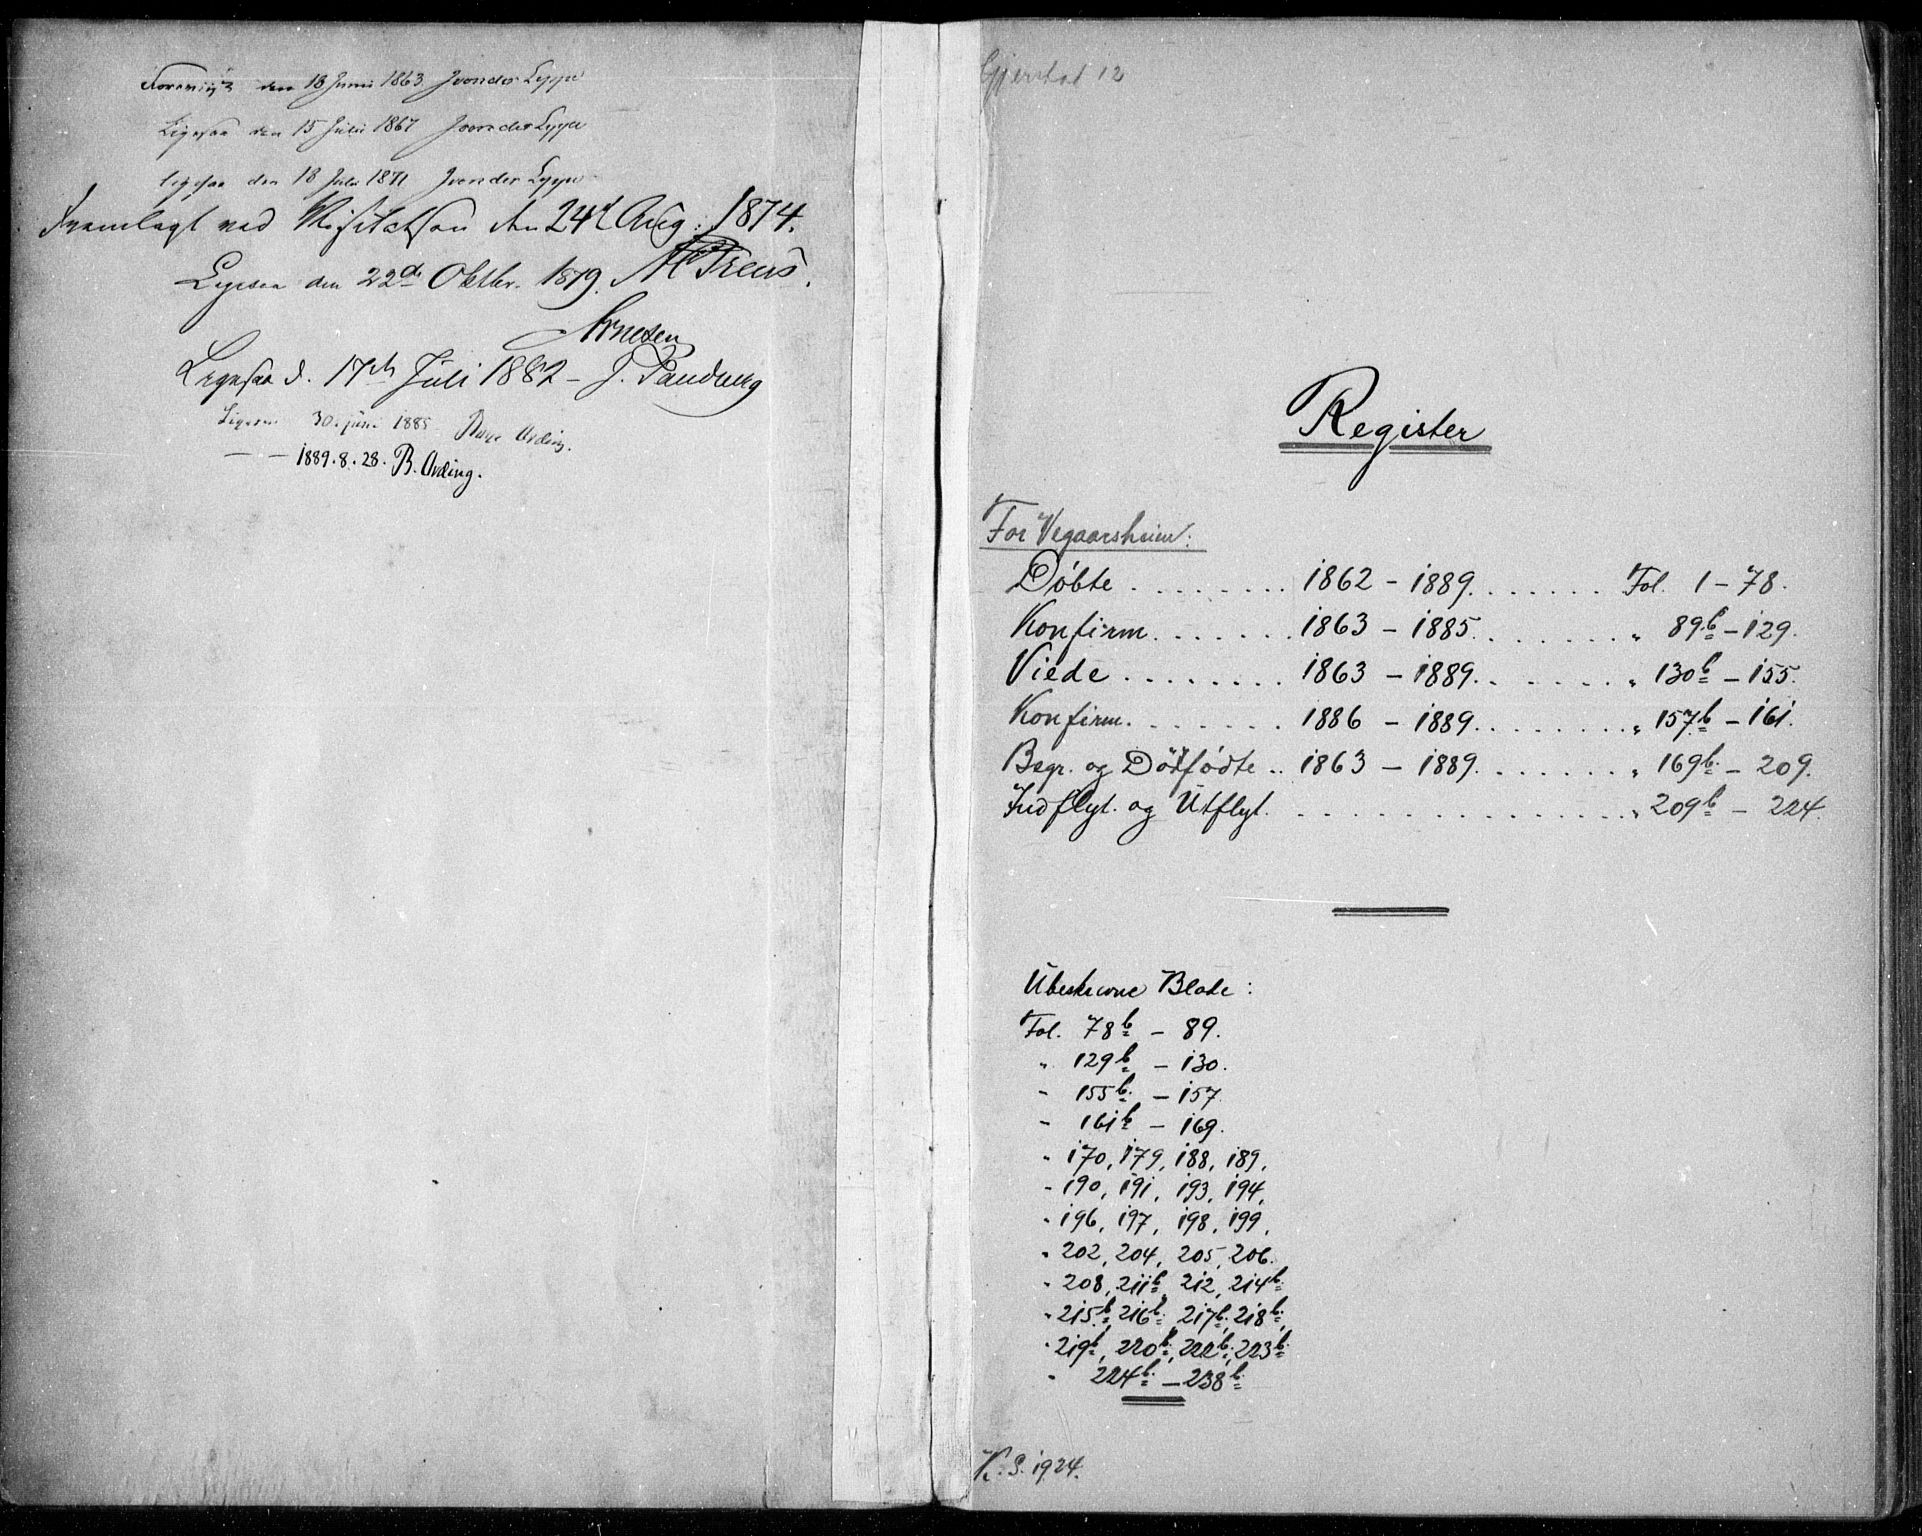 Forevist den 18 Juni 1863 J von der Lippe
Ligesaa den 15 Juli 1867 J von der Lippe
ligesaa den 18 Juli 1871 J von der Lippe
Fremlagt ved Visitatsen den 24d Aug: 1874.
Ligesaa den 22de Oktbr. 1879.
Arnesen
Ligesaa d. 17de Juli 1882 – J. Sandberg
Ligesaa 30. juni 1885 Arding.
— — 1889.8.28. B. Arding.
Gjerstad 12
Register
For Vegaarsheim:
Døbte . . . . . . . . 1862 – 1889 . . . . . . Fol. 1 – 78.
Konfirm. . . . . . . 1863 – 1885. . . . . . . " 89b – 129.
Viede . . . . . . . . 1863 – 1889. . . . . . . " 130b – 155.
Konfirm. . . . . . . 1886 – 1889. . . . . . . " 157b – 161.
Begr. og Dødfødte .. 1863 – 1889. . . . . . . " 169b – 209.
Indflyt. og Utflyt. . . . . . . . . . . . . . . " 209b – 224.
Ubeskrevne Blade:
Fol. 78b – 89.
" 129b – 130.
" 155b – 157.
" 161b – 169.
" 170, 179, 188, 189,
" 190, 191, 193, 194,
" 196, 197, 198, 199,
" 202, 204, 205, 206.
" 208, 211b, 212, 214b
" 215b, 216b, 217b, 218b,
" 219b, 220b, 222b, 223b
" 224b – 238b
K. S. 1924.